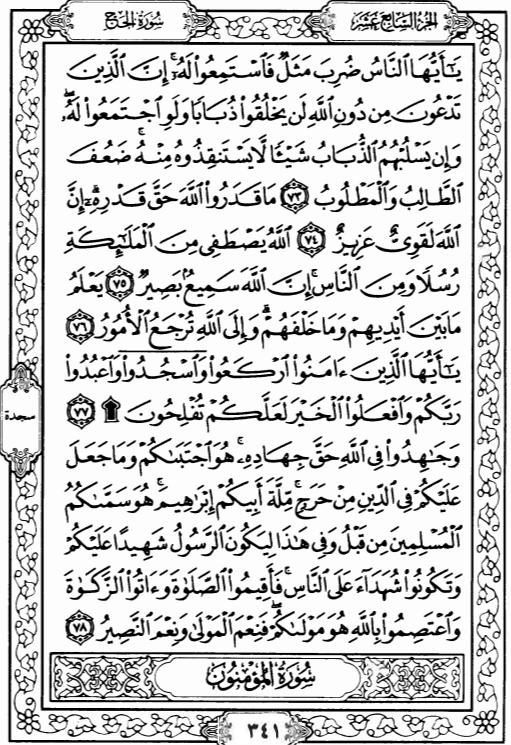 الجزء السابع عشر
سورة الحج
يَٰٓأَيُّهَا ٱلنَّاسُ ضُرِبَ مَثَلٞ فَٱسۡتَمِعُواْ لَهُۥٓۚ إِنَّ ٱلَّذِينَ
تَدۡعُونَ مِن دُونِ ٱللَّهِ لَن يَخۡلُقُواْ ذُبَابٗا وَلَوِ ٱجۡتَمَعُواْ لَهُۥۖ
وَإِن يَسۡلُبۡهُمُ ٱلذُّبَابُ شَيۡـٔٗا لَّا يَسۡتَنقِذُوهُ مِنۡهُۚ ضَعُفَ
ٱلطَّالِبُ وَٱلۡمَطۡلُوبُ ٧٣ مَا قَدَرُواْ ٱللَّهَ حَقَّ قَدۡرِهِۦٓۚ إِنَّ
ٱللَّهَ لَقَوِيٌّ عَزِيزٌ ٧٤ ٱللَّهُ يَصۡطَفِي مِنَ ٱلۡمَلَٰٓئِكَةِ
رُسُلٗا وَمِنَ ٱلنَّاسِۚ إِنَّ ٱللَّهَ سَمِيعُۢ بَصِيرٞ ٧٥ يَعۡلَمُ
مَا بَيۡنَ أَيۡدِيهِمۡ وَمَا خَلۡفَهُمۡۚ وَإِلَى ٱللَّهِ تُرۡجَعُ ٱلۡأُمُورُ ٧٦
يَٰٓأَيُّهَا ٱلَّذِينَ ءَامَنُواْ ٱرۡكَعُواْ وَٱسۡجُدُواْ وَٱعۡبُدُواْ
رَبَّكُمۡ وَٱفۡعَلُواْ ٱلۡخَيۡرَ لَعَلَّكُمۡ تُفۡلِحُونَ ۩ ٧٧
سجدة
وَجَٰهِدُواْ فِي ٱللَّهِ حَقَّ جِهَادِهِۦۚ هُوَ ٱجۡتَبَىٰكُمۡ وَمَا جَعَلَ
عَلَيۡكُمۡ فِي ٱلدِّينِ مِنۡ حَرَجٖۚ مِّلَّةَ أَبِيكُمۡ إِبۡرَٰهِيمَۚ هُوَ سَمَّىٰكُمُ
ٱلۡمُسۡلِمِينَ مِن قَبۡلُ وَفِي هَٰذَا لِيَكُونَ ٱلرَّسُولُ شَهِيدًا عَلَيۡكُمۡ
وَتَكُونُواْ شُهَدَآءَ عَلَى ٱلنَّاسِۚ فَأَقِيمُواْ ٱلصَّلَوٰةَ وَءَاتُواْ ٱلزَّكَوٰةَ
وَٱعۡتَصِمُواْ بِٱللَّهِ هُوَ مَوۡلَىٰكُمۡۖ فَنِعۡمَ ٱلۡمَوۡلَىٰ وَنِعۡمَ ٱلنَّصِيرُ ٧٨
سُورَةُ المُؤْمِنُون
٣٤١